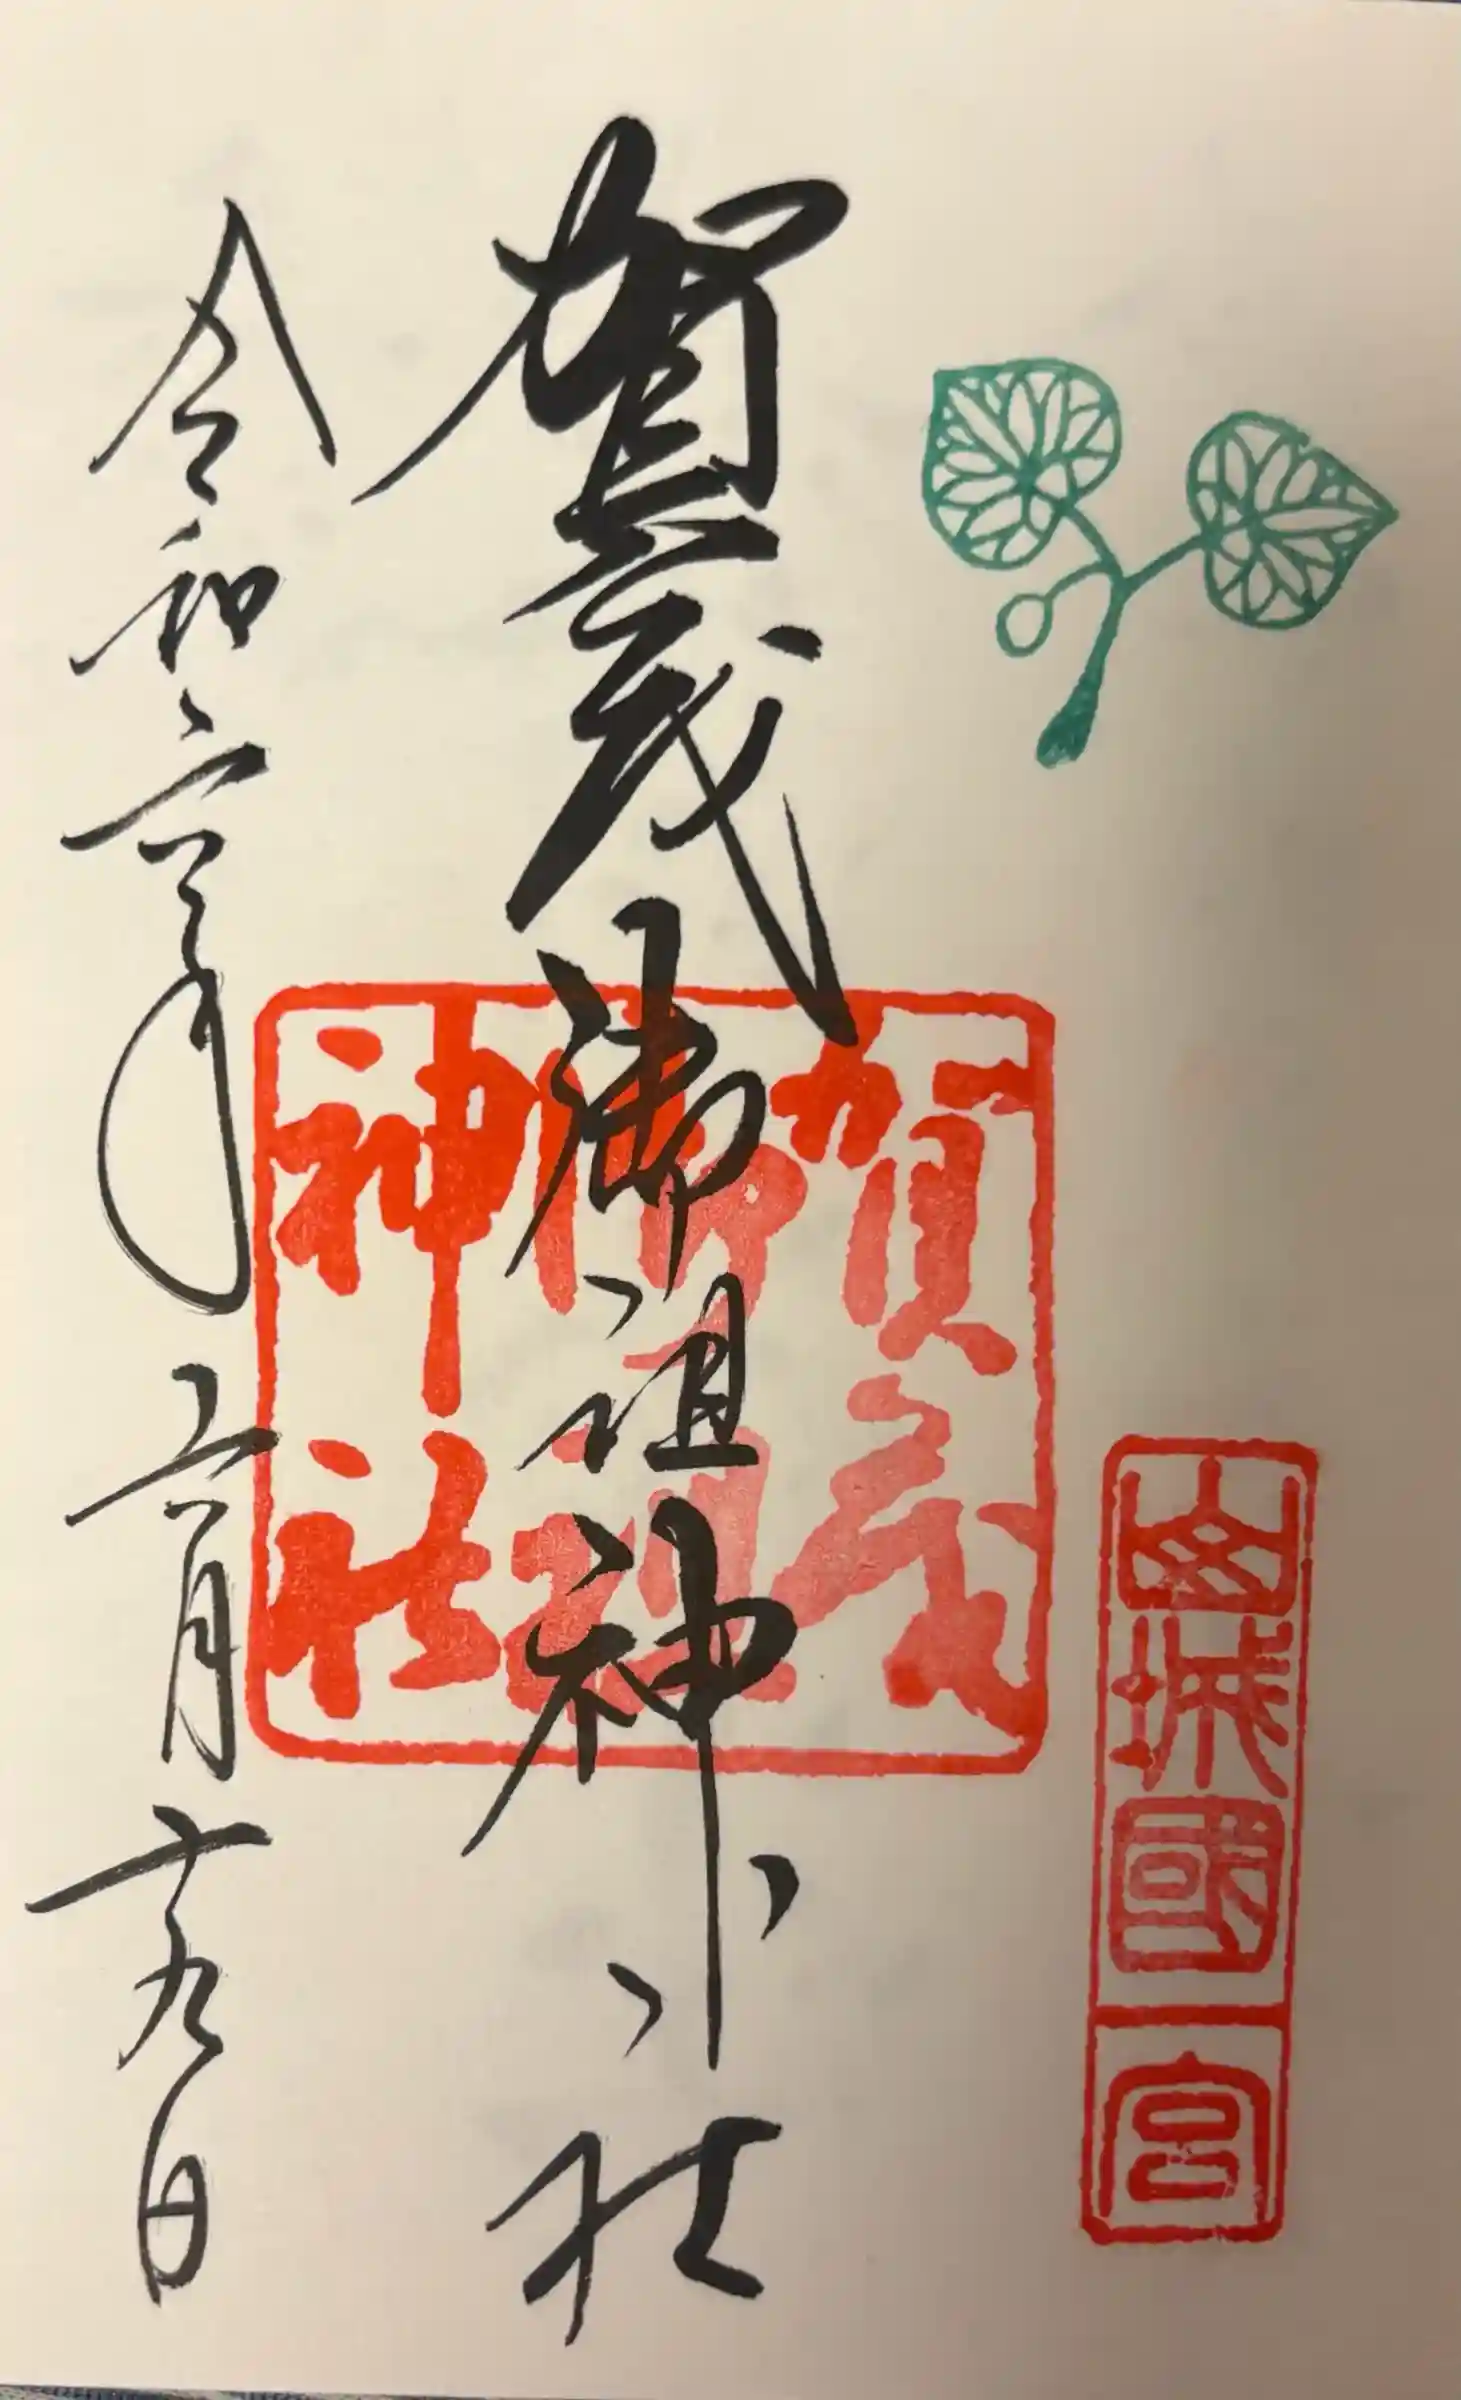 山城國一宮
賀茂御祖神社
賀茂
御祖
神社
令和六年月十九日